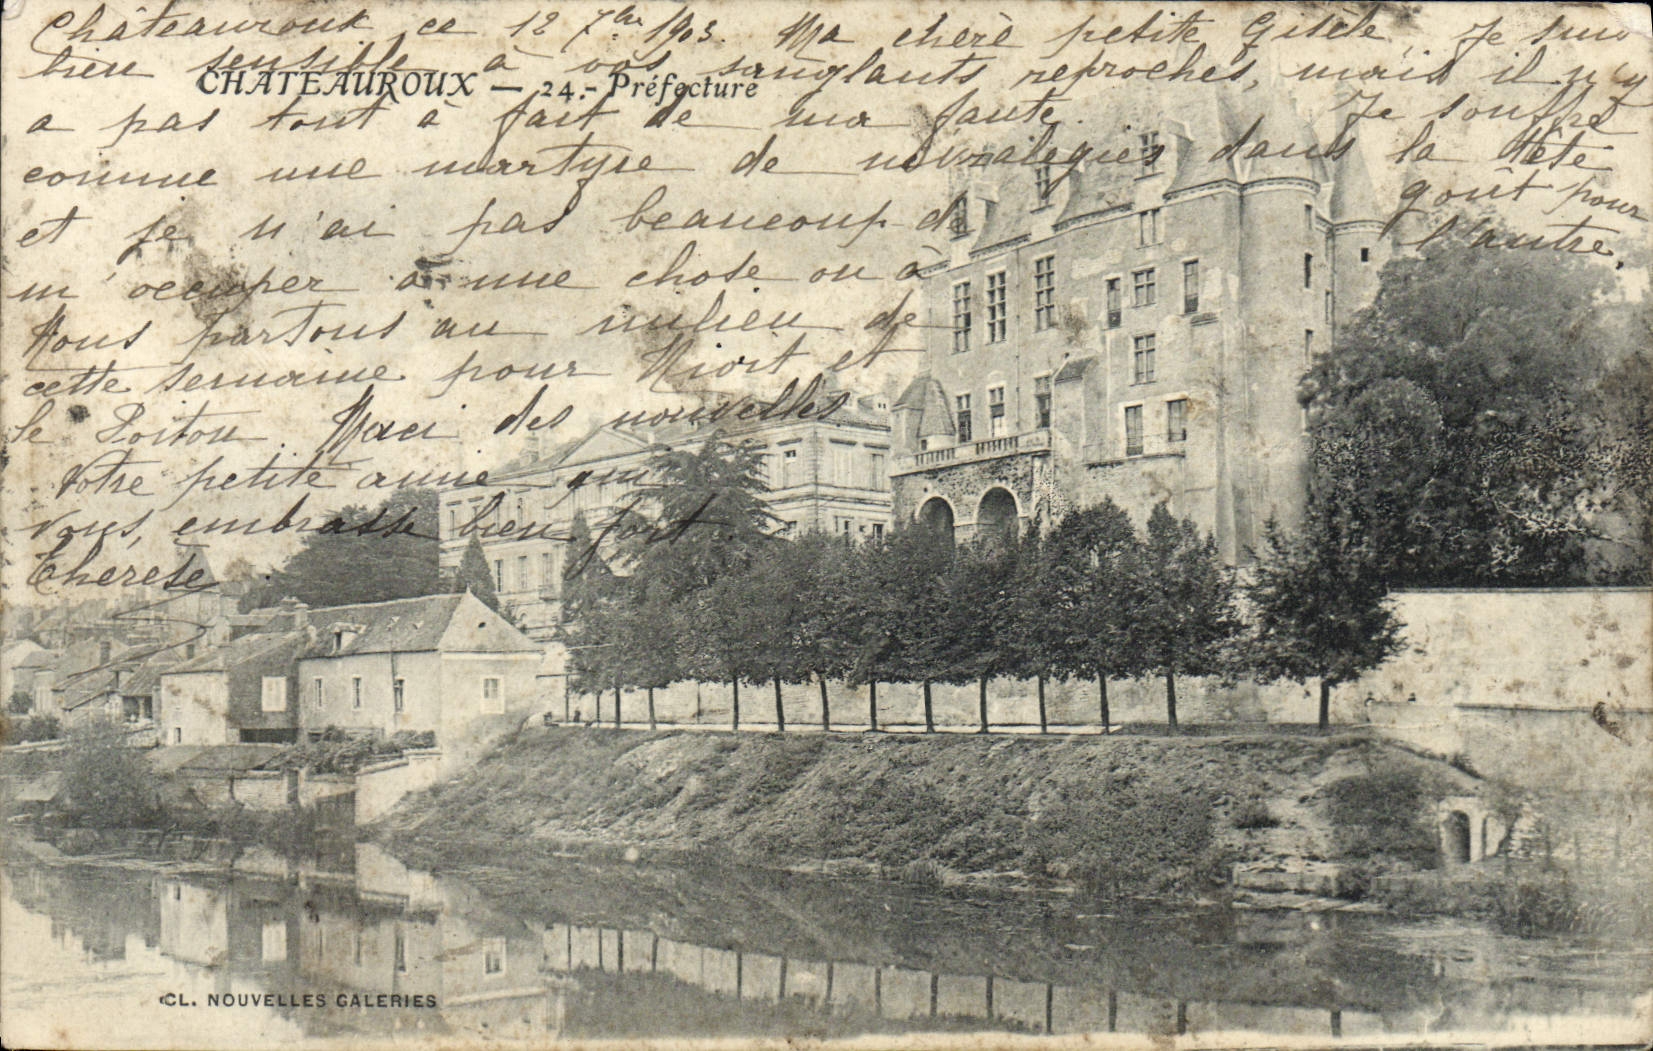 Châteauroux ce 12 7bre 1903. Ma chère petite Gisèle, Je suis
bien sensible à vos sanglants reproches, mais il n'y
CHATEAUROUX — 24.- Préfecture
a pas tout à fait de ma faute. Je souffre
comme une martyre de névralgies dans la tête
et je n'ai pas beaucoup de goût pour
m'occuper à une chose ou à l'autre.
Nous partons au milieu de
cette semaine pour Niort et
le Poitou. Merci des nouvelles
Votre petite amie qui
vous embrasse bien fort.
Thérèse
CL. NOUVELLES GALERIES